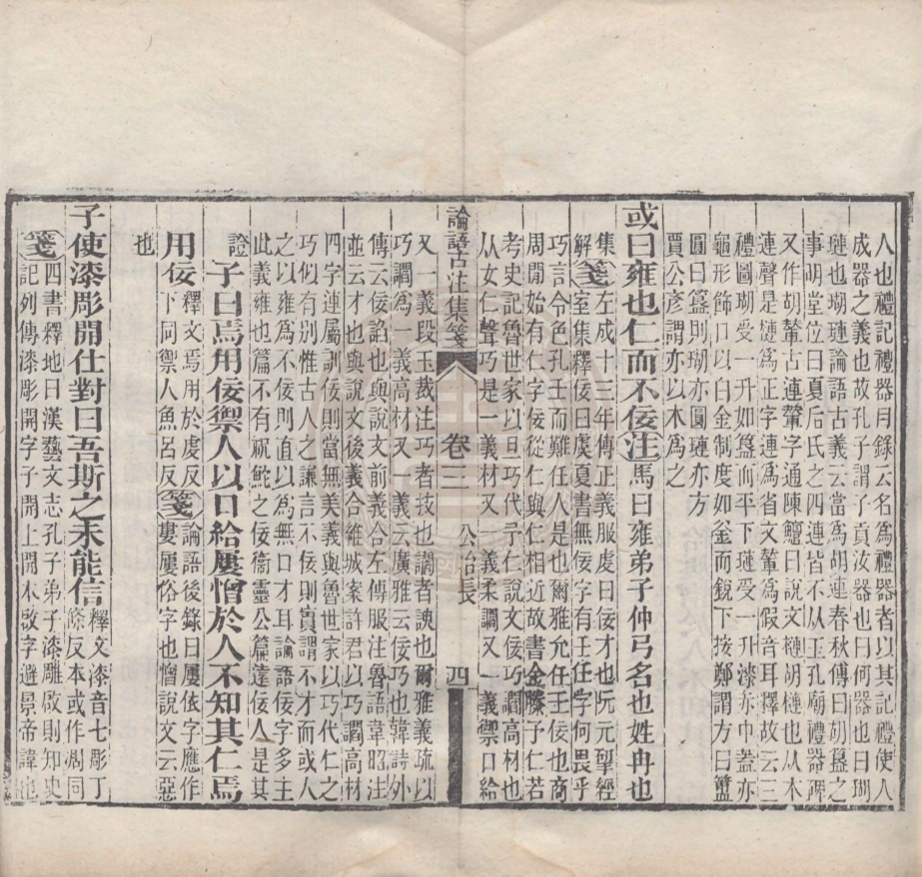 人也禮記禮器目錄云名爲禮器者以其記禮使人
成器之義也故孔子謂子貢汝器也曰何器也曰瑚
璉也瑚璉論語古義云當爲胡連春秋傳曰胡簋之
事明堂位曰夏后氏之四連皆不从玉孔廟禮器碑
又作胡輦古連輦字通陳鱣曰說文槤胡槤也从木
連聲是槤爲正字連爲省文輦爲假音耳釋故云三
禮圖瑚受一升如簋而平下璉受一升漆赤中蓋亦
龜形飾口以白金制度如釜而銳下按鄭謂方曰簠
圓曰簋則瑚亦圓璉亦方
賈公彥謂亦以木爲之
或曰雍也仁而不佞注馬曰雍弟子仲弓名也姓冉也
集左成十三年傳正義服虔曰佞才也阮元揅經
解箋室集釋佞曰虞夏書無佞字有壬任字何畏乎
巧言令色孔壬而難任人是也爾雅允任壬佞也商
周閒始有仁字佞從仁與仁相近故書金縢予仁若
考史記魯世家以旦巧代予仁說文佞巧讇高材也
从女仁聲巧是一義材又一義柔讇又一義禦口給
論語古注集箋 卷三 公冶長 四
又一義段玉裁注巧者技也讇者諛也爾雅義疏以
巧讇爲一義高材又一義云廣雅云佞巧也韓詩外
傳云佞諂也與說文前義合左傳服注魯語韋昭注
並云才也與說文後義合維城案許君以巧讇高材
四字連屬訓佞則當無美義與魯世家以巧代仁之
巧似有别惟古人之謙言不佞則實謂不才而或人
之以雍爲不佞則直以爲無口才耳論語佞字多主
此義雍也篇不有祝鮀之佞衞靈公篇遠佞人是其
證
子曰焉用佞禦人以口給屢憎於人不知其仁焉
用佞釋文焉用於虔反箋論語後錄曰屢依字應作
下同禦人魚呂反婁屢俗字也憎說文云惡
也
子使漆彫開仕對曰吾斯之未能信釋文漆音七彫丁
條反本或作凋同
箋四書釋地曰漢藝文志孔子弟子漆雕啟則知史
記列傳漆彫開字子開上開本啟字避景帝諱也